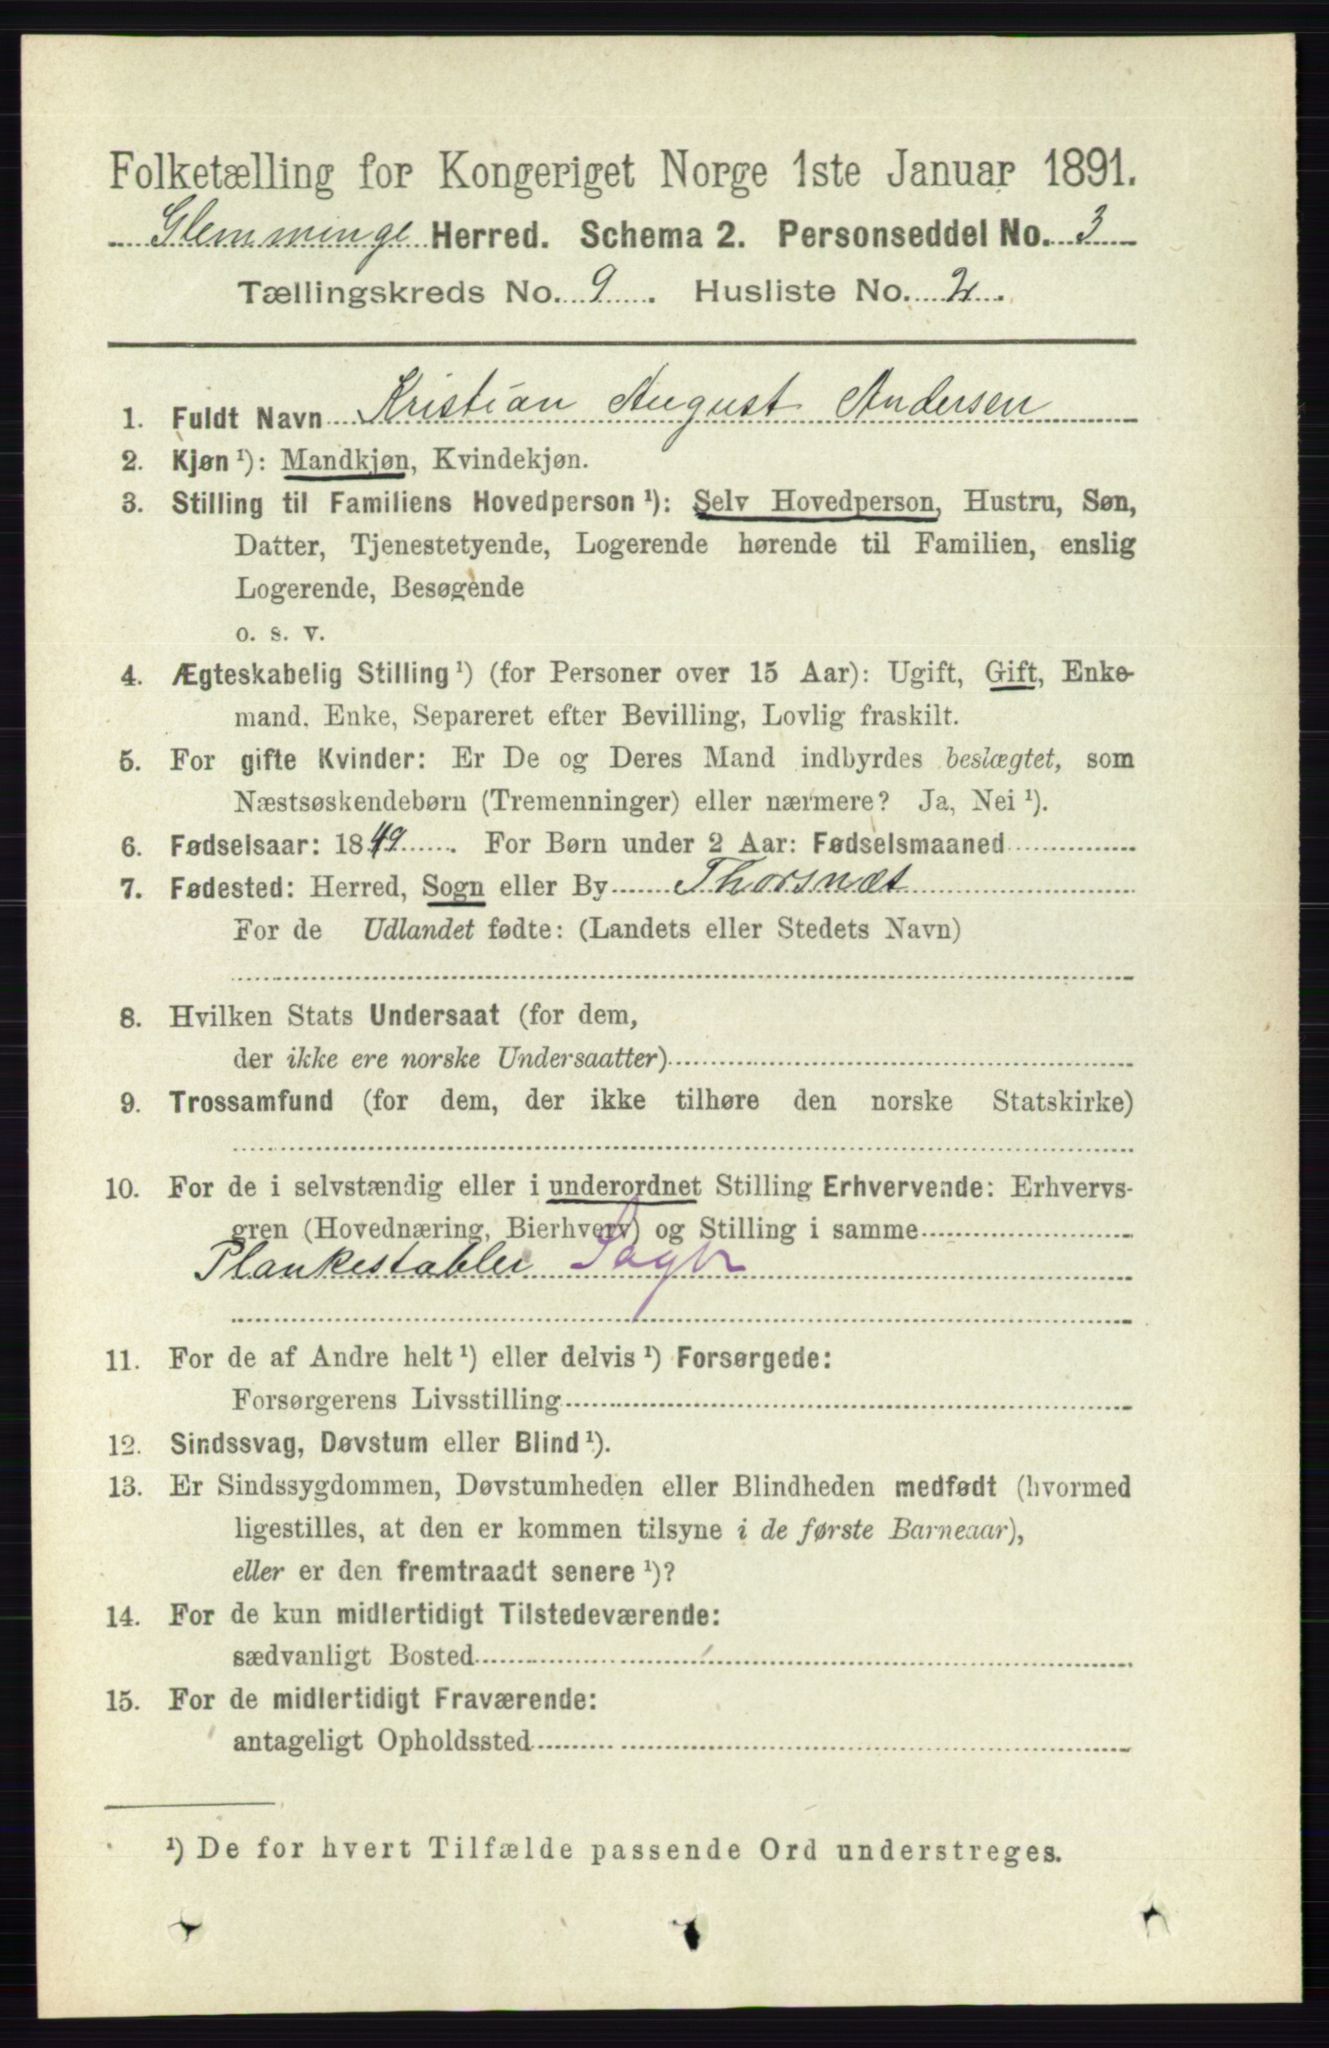 Folketælling for Kongeriget Norge 1ste Januar 1891.
Glemminge Herred. Schema 2. Personseddel No. 3
Tællingskreds No. 9. Husliste No. 2.
1. Fuldt Navn Kristian August Andersen
2. Kjøn ¹): Mandkjøn, Kvindekjøn.
3. Stilling til Familiens Hovedperson ¹): Selv Hovedperson, Hustru, Søn,
Datter, Tjenestetyende, Logerende hørende til Familien, enslig
Logerende, Besøgende
o. s. v.
4. Ægteskabelig Stilling ¹) (for Personer over 15 Aar): Ugift, Gift, Enke-
mand, Enke, Separeret efter Bevilling, Lovlig fraskilt.
5. For gifte Kvinder: Er De og Deres Mand indbyrdes beslægtet, som
Næstsøskendebørn (Tremenninger) eller nærmere? Ja, Nei ¹).
6. Fødselsaar: 1849. For Børn under 2 Aar: Fødselsmaaned
7. Fødested: Herred, Sogn eller By Thorsnæs
For de Udlandet fødte: (Landets eller Stedets Navn)
8. Hvilken Stats Undersaat (for dem,
der ikke ere norske Undersaatter)
9. Trossamfund (for dem, der ikke tilhøre den norske Statskirke)
10. For de i selvstændig eller i underordnet Stilling Erhvervende: Erhvervs-
gren (Hovednæring, Bierhverv) og Stilling i samme
Plankestabler Sagbr
11. For de af Andre helt ¹) eller delvis ¹) Forsørgede:
Forsørgerens Livsstilling
12. Sindssvag, Døvstum eller Blind ¹).
13. Er Sindssygdommen, Døvstumheden eller Blindheden medfødt (hvormed
ligestilles, at den er kommen tilsyne i de første Barneaar),
eller er den fremtraadt senere ¹)?
14. For de kun midlertidigt Tilstedeværende:
sædvanligt Bosted
15. For de midlertidigt Fraværende:
antageligt Opholdssted
¹) De for hvert Tilfælde passende Ord understreges.